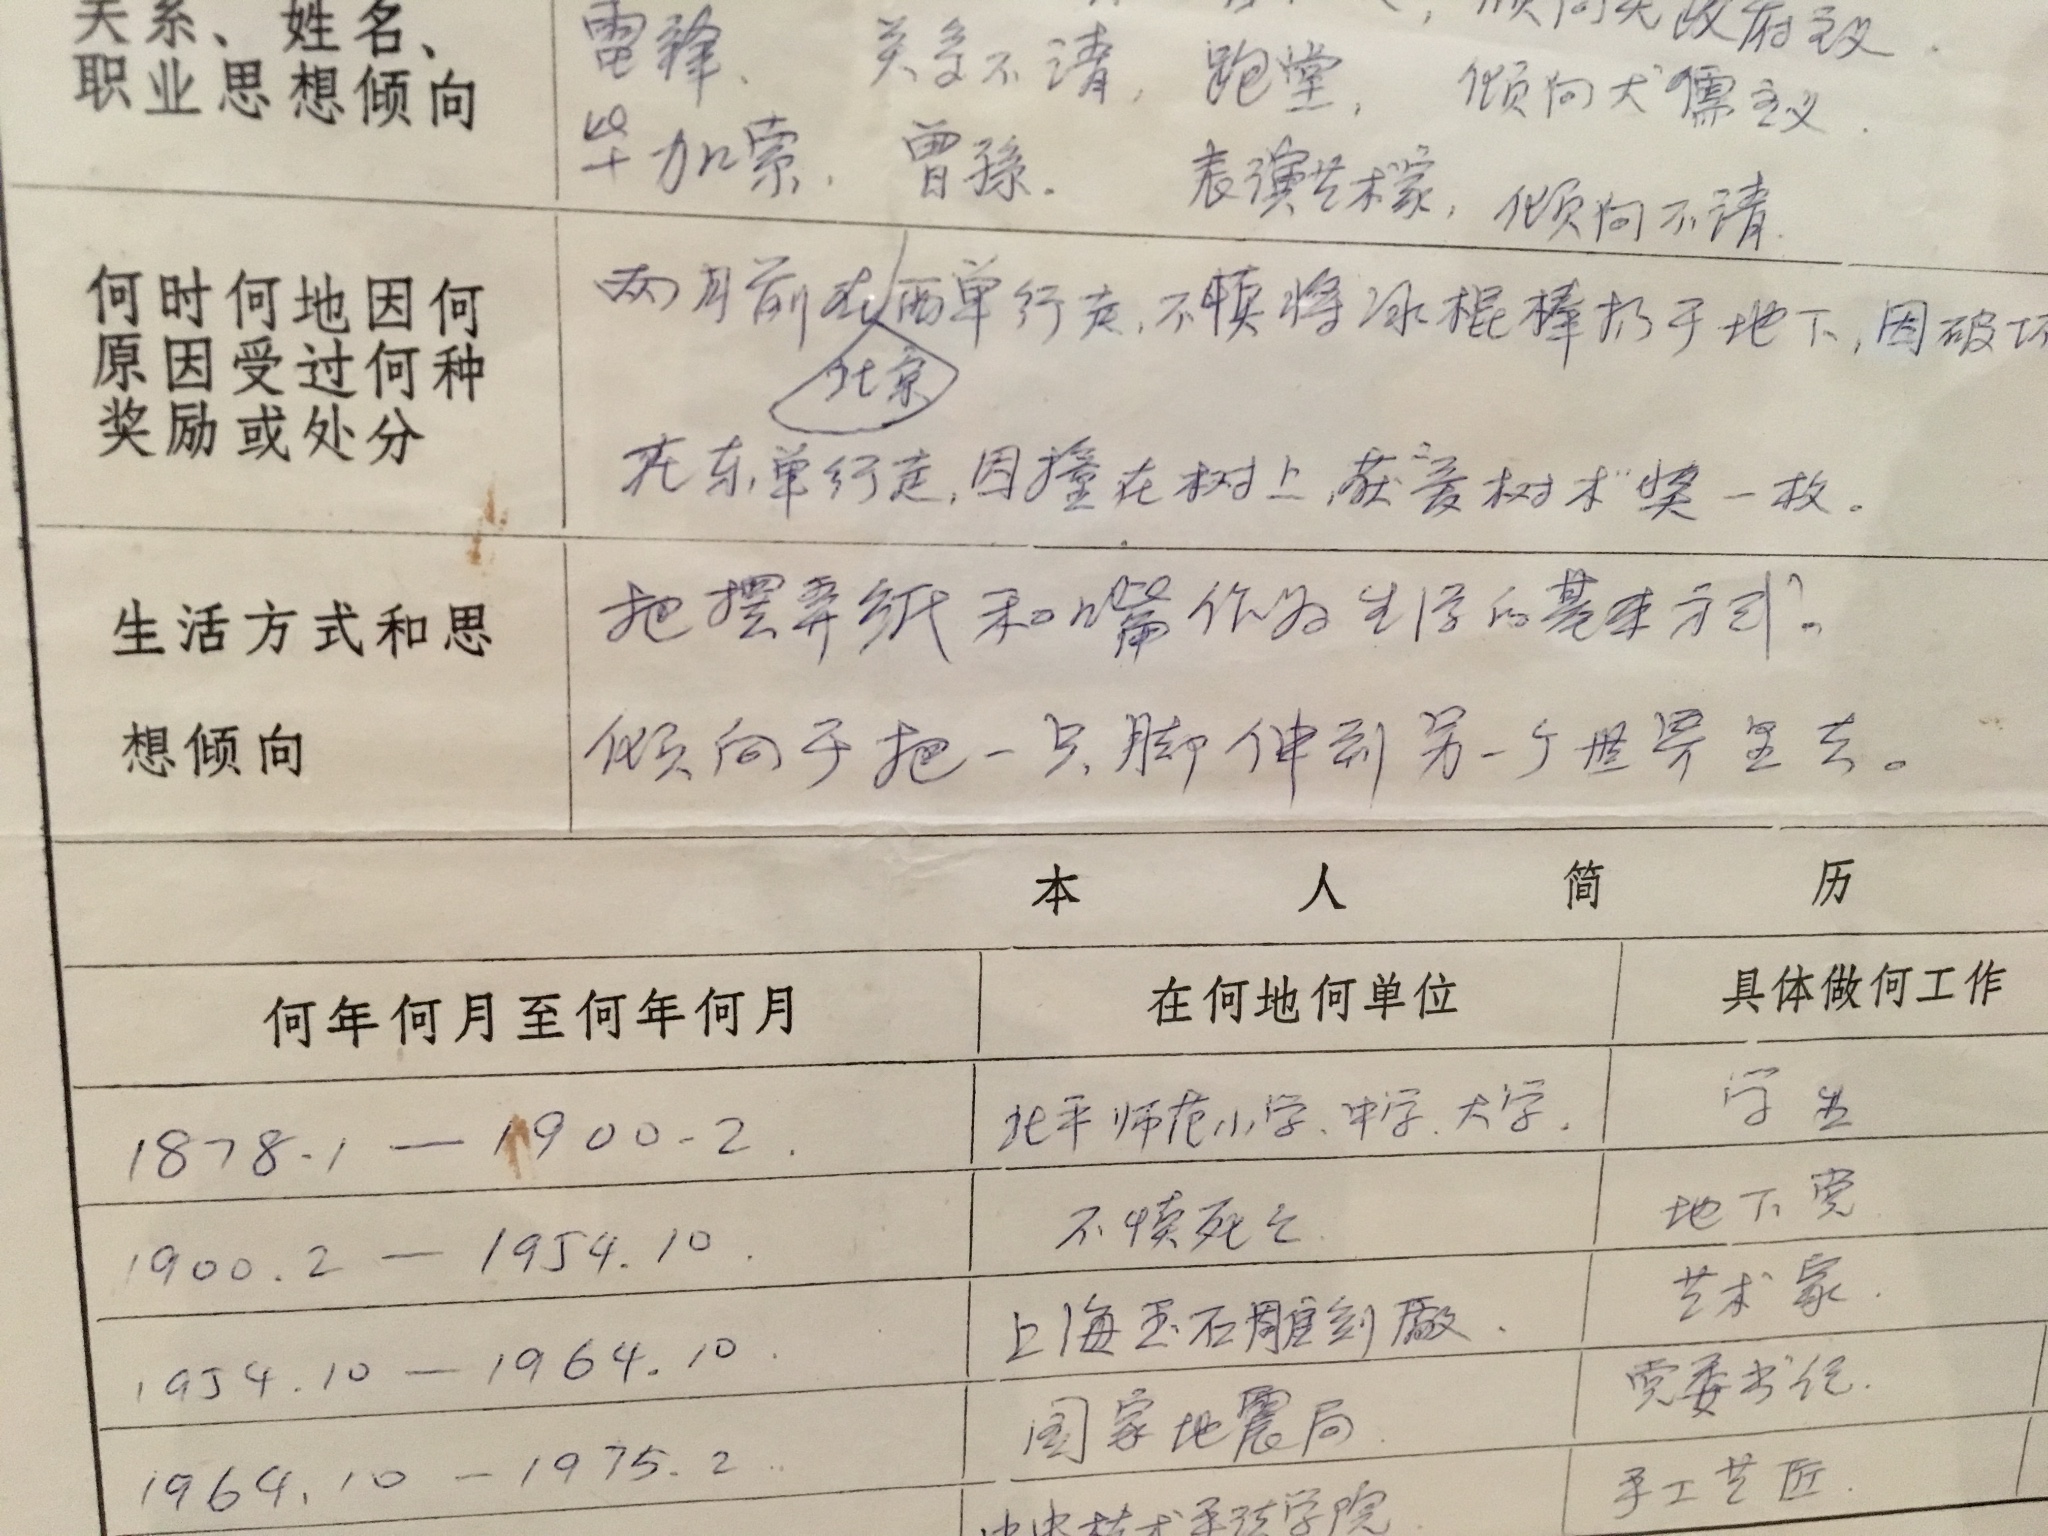 关系、姓名、
职业思想倾向
倾向无政府主义.
雷锋、 关系不清, 跑堂, 倾向犬儒主义.
毕加索, 曾孫. 表演艺术家, 倾向不请.
何时何地因何
原因受过何种
奖励或处分
两月前在西单行走,不慎将冰棍棒扔于地下,因破坏
北京
在东单行走,因撞在树上,获“爱树木”奖一枚。
生活方式和思
想倾向
把摆弄纸和嘴作为生活的基本方式。
倾向于把一只脚伸到另一个世界里去。
本人简历
何年何月至何年何月 在何地何单位 具体做何工作
1878.1 — 1900.2. 北平师范小学、中学、大学. 学生
1900.2 — 1954.10. 不慎死亡. 地下党
1954.10 — 1964.10. 上海玉石雕刻廠. 艺术家.
1964.10 — 1975.2. 国家地震局. 党委书记.
手工艺匠.